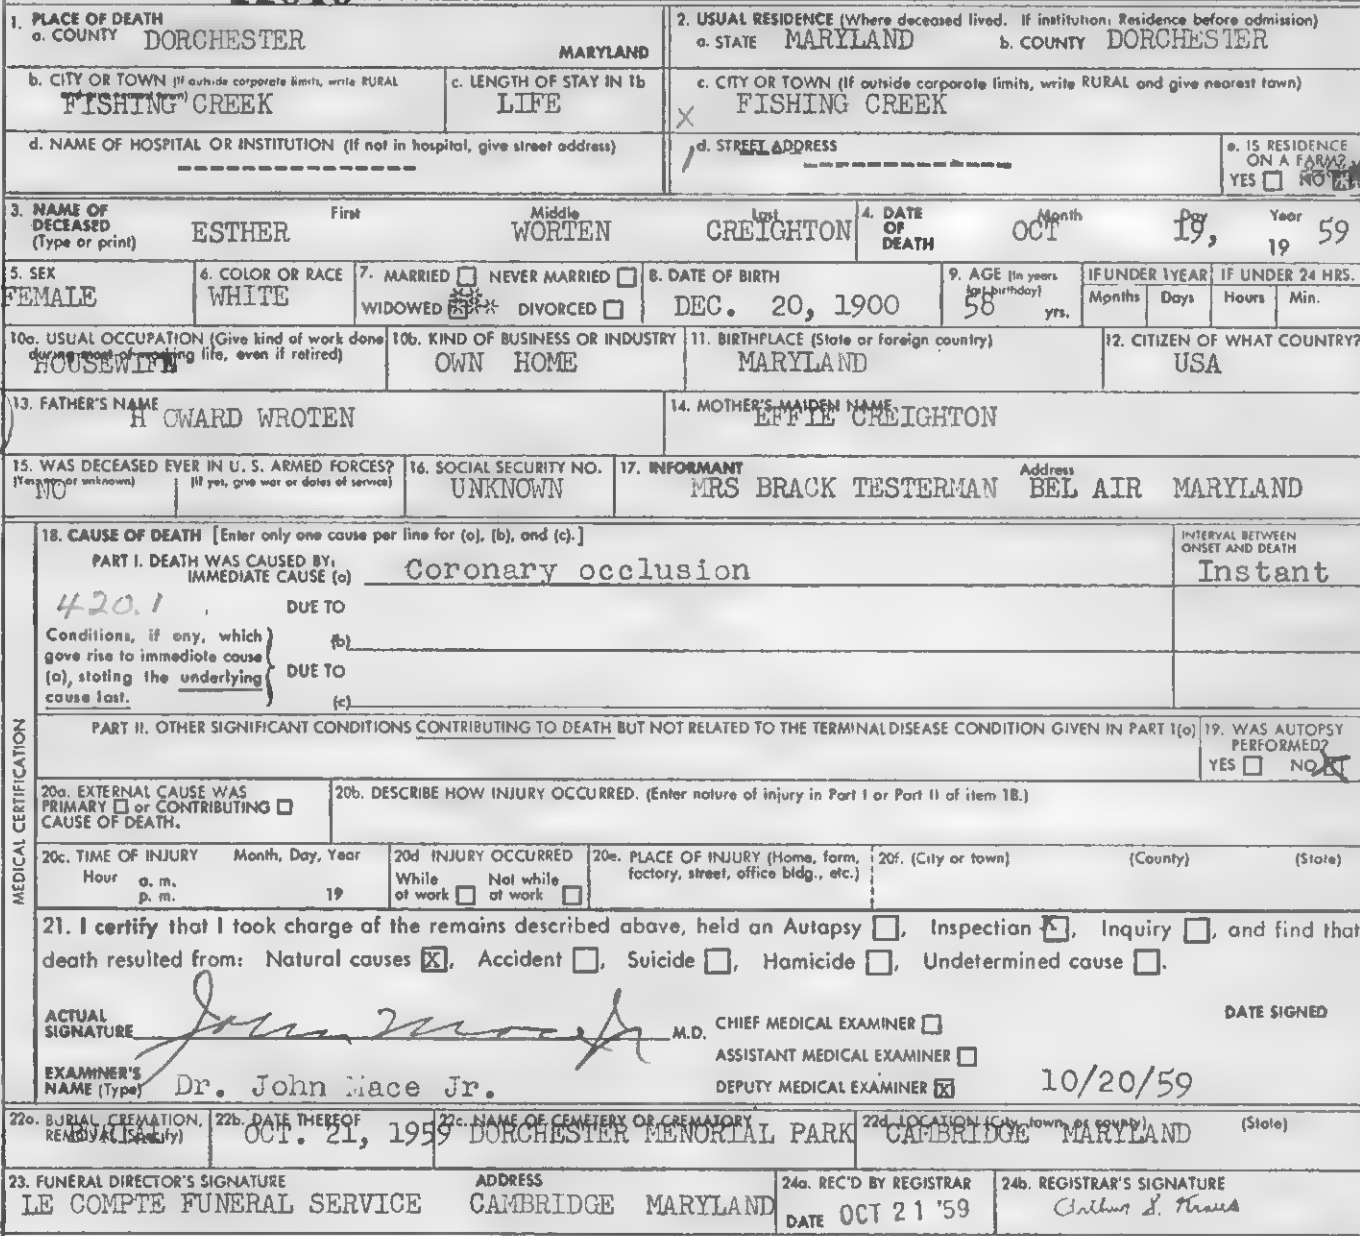 1. PLACE OF DEATH
a. COUNTY DORCHESTER MARYLAND
2. USUAL RESIDENCE (Where deceased lived. If institution: Residence before admission)
a. STATE MARYLAND b. COUNTY DORCHESTER
b. CITY OR TOWN (If outside corporate limits, write RURAL and give nearest town)
FISHING CREEK
c. LENGTH OF STAY IN 1b
LIFE
c. CITY OR TOWN (If outside corporate limits, write RURAL and give nearest town)
X FISHING CREEK
d. NAME OF HOSPITAL OR INSTITUTION (If not in hospital, give street address)
----------------
d. STREET ADDRESS
--------------
e. IS RESIDENCE ON A FARM?
YES NO X
3. NAME OF DECEASED (Type or print)
First Middle Last
ESTHER WORTEN CREIGHTON
4. DATE OF DEATH
Month Day Year
OCT 19, 19 59
5. SEX
FEMALE
6. COLOR OR RACE
WHITE
7. MARRIED NEVER MARRIED
WIDOWED X DIVORCED
8. DATE OF BIRTH
DEC. 20, 1900
9. AGE (In years last birthday)
58 yrs.
IF UNDER 1 YEAR
Months Days
IF UNDER 24 HRS.
Hours Min.
10a. USUAL OCCUPATION (Give kind of work done during most of working life, even if retired)
HOUSEWIFE
10b. KIND OF BUSINESS OR INDUSTRY
OWN HOME
11. BIRTHPLACE (State or foreign country)
MARYLAND
12. CITIZEN OF WHAT COUNTRY?
USA
13. FATHER'S NAME
H OWARD WROTEN
14. MOTHER'S MAIDEN NAME
EFFIE CREIGHTON
15. WAS DECEASED EVER IN U. S. ARMED FORCES?
(Yes, no, or unknown) (If yes, give war or dates of service)
NO
16. SOCIAL SECURITY NO.
UNKNOWN
17. INFORMANT Address
MRS BRACK TESTERMAN BEL AIR MARYLAND
MEDICAL CERTIFICATION
18. CAUSE OF DEATH [Enter only one cause per line for (a), (b), and (c).]
INTERVAL BETWEEN ONSET AND DEATH
PART I. DEATH WAS CAUSED BY:
IMMEDIATE CAUSE (a) Coronary occlusion Instant
420.1 DUE TO
Conditions, if any, which gave rise to immediate cause (a), stating the underlying cause last.
(b)
DUE TO
(c)
PART II. OTHER SIGNIFICANT CONDITIONS CONTRIBUTING TO DEATH BUT NOT RELATED TO THE TERMINAL DISEASE CONDITION GIVEN IN PART I(a)
19. WAS AUTOPSY PERFORMED?
YES NO X
20a. EXTERNAL CAUSE WAS
PRIMARY or CONTRIBUTING
CAUSE OF DEATH.
20b. DESCRIBE HOW INJURY OCCURRED. (Enter nature of injury in Part I or Part II of item 18.)
20c. TIME OF INJURY Month, Day, Year
Hour a. m.
p. m. 19
20d INJURY OCCURRED
While at work Not while at work
20e. PLACE OF INJURY (Home, farm, factory, street, office bldg., etc.)
20f. (City or town) (County) (State)
21. I certify that I took charge of the remains described above, held an Autopsy , Inspection X, Inquiry , and find that
death resulted from: Natural causes X, Accident , Suicide , Homicide , Undetermined cause .
ACTUAL SIGNATURE John Mace Jr M.D.
CHIEF MEDICAL EXAMINER
DATE SIGNED
ASSISTANT MEDICAL EXAMINER
EXAMINER'S NAME (Type) Dr. John Mace Jr.
DEPUTY MEDICAL EXAMINER X
10/20/59
22a. BURIAL, CREMATION, REMOVAL (Specify)
BURIAL
22b. DATE THEREOF
OCT. 21, 1959
22c. NAME OF CEMETERY OR CREMATORY
DORCHESTER MENORIAL PARK
22d. LOCATION (City, town, or county) (State)
CAMBRIDGE MARYLAND
23. FUNERAL DIRECTOR'S SIGNATURE ADDRESS
LE COMPTE FUNERAL SERVICE CAMBRIDGE MARYLAND
24a. REC'D BY REGISTRAR
DATE OCT 21 '59
24b. REGISTRAR'S SIGNATURE
Arthur S. Kraus